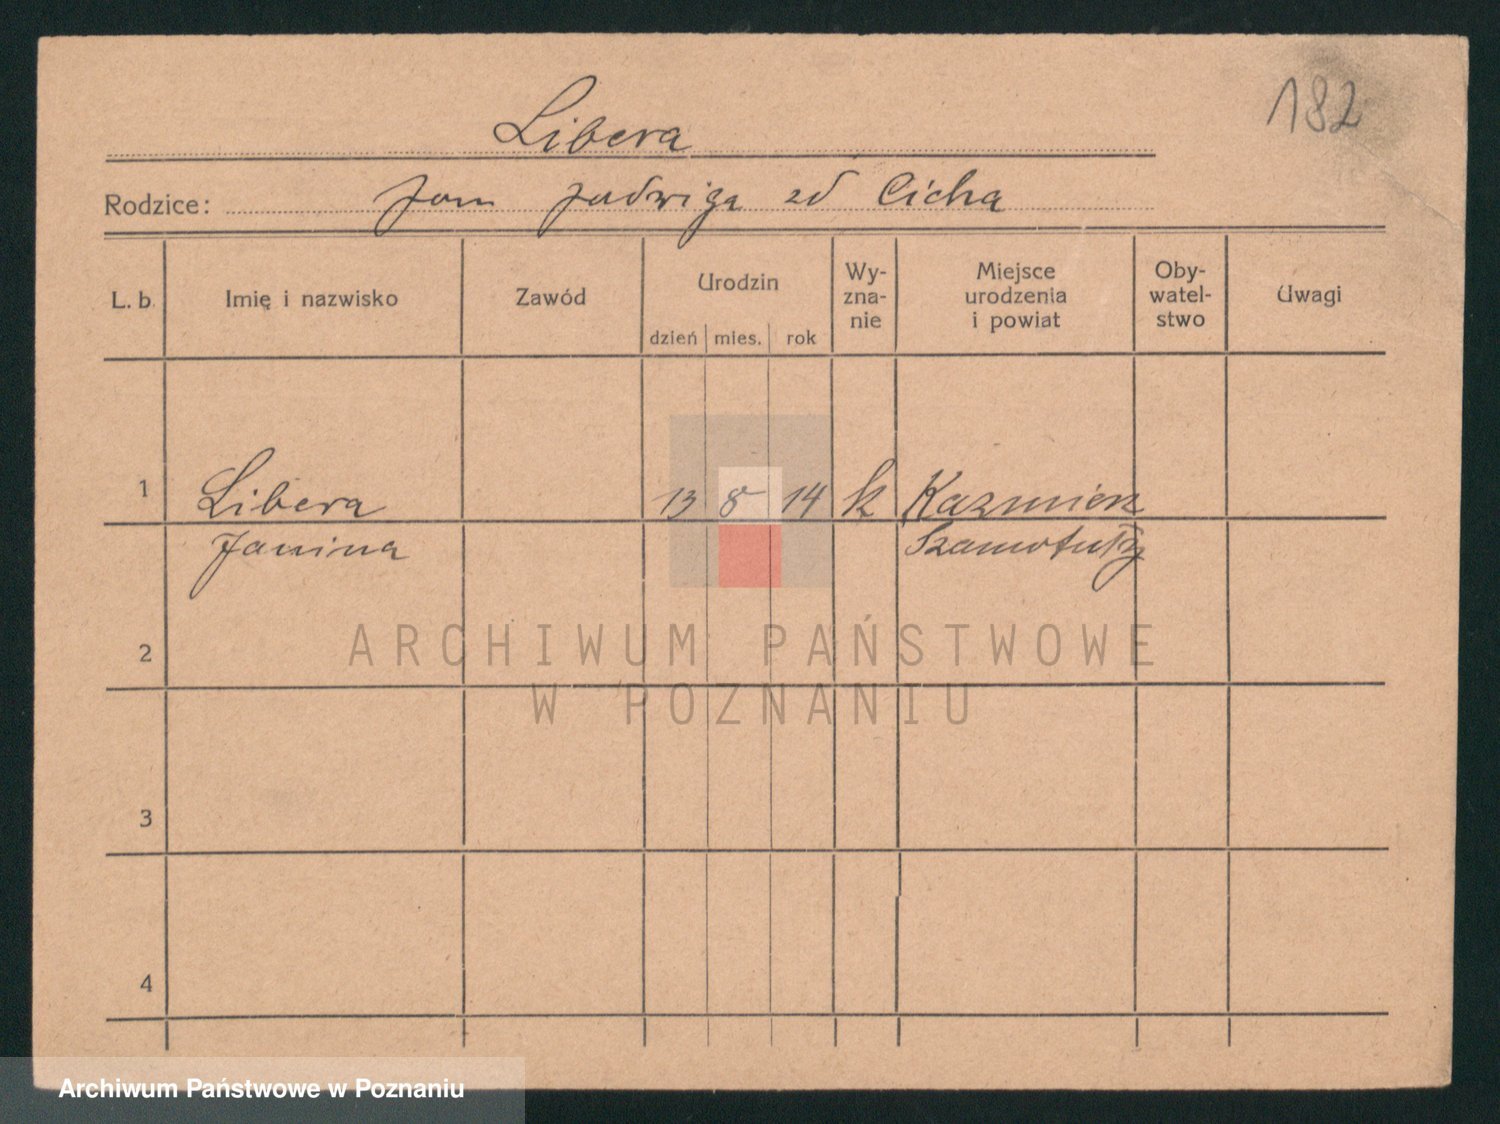 182
Libera
Rodzice: Jan Jadwiga zd Cicha
L. b. Imię i nazwisko Zawód Urodzin dzień mies. rok Wy-zna-nie Miejsce urodzenia i powiat Oby-watel-stwo Uwagi
1 Libera 13 8 14 k Kazmierz
Janina Szamotuły
2
ARCHIWUM PAŃSTWOWE
W POZNANIU
3
4
Archiwum Państwowe w Poznaniu